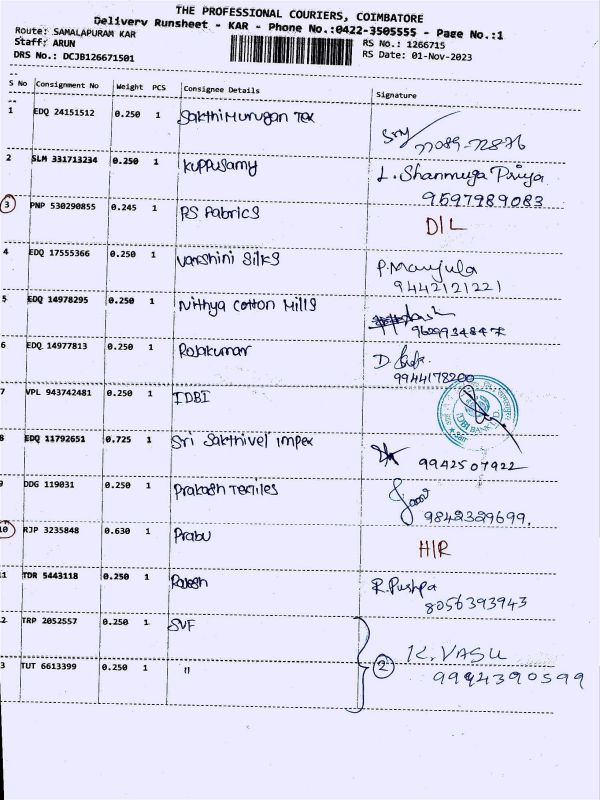 THE PROFESSIONAL COURIERS, COIMBATORE
Delivery Runsheet - KAR - Phone No.:0422-3505555 - Page No.:1
Route: SAMALAPURAM KAR
Staff: ARUN
DRS No.: DCJB126671501
RS No.: 1266715
RS Date: 01-Nov-2023
S No Consignment No Weight PCS Consignee Details Signature
1 EDQ 24151512 0.250 1 Sakthi Murugan Tex 77089-72876
2 SLM 331713234 0.250 1 Kuppusamy L. Shanmuga Priya
9597989083
3 PNP 530290855 0.245 1 RS Fabrics D/L
4 EDQ 17555366 0.250 1 Varshini Silks P. Manjula
9442121221
5 EDQ 14978295 0.250 1 Nithya Cotton Mills
6 EDQ 14977813 0.250 1 Rajakumar D.
9944178200
7 VPL 943742481 0.250 1 IDBI IDBI BANK LTD.
8 EDQ 11792651 0.725 1 Sri Sakthivel impex 9942507922
9 DDG 119031 0.250 1 Prakash Textiles
9842329699.
10 RJP 3235848 0.630 1 Prabu H/R
11 TDR 5443118 0.250 1 Rakesh R. Pushpa
8056393943
2 TRP 2052557 0.250 1 SVF K. VASU
3 TUT 6613399 0.250 1 " 2 9944390599